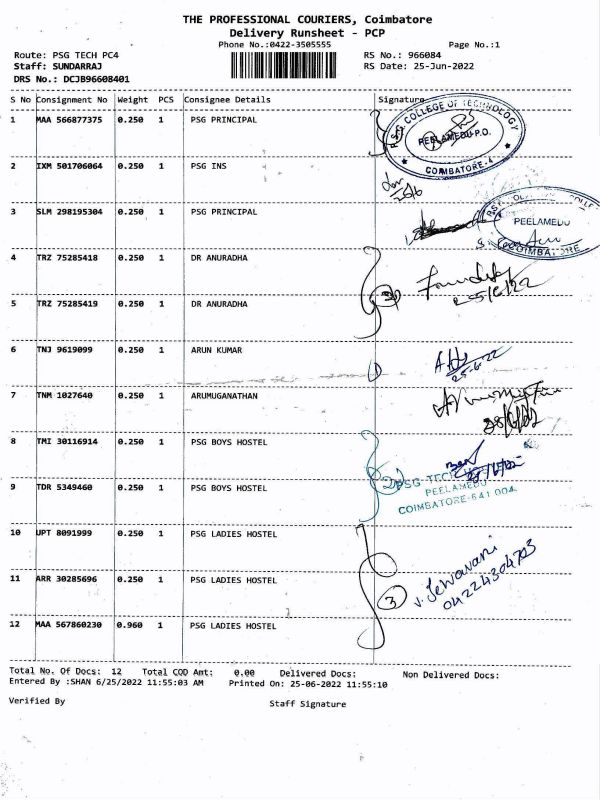 THE PROFESSIONAL COURIERS, Coimbatore
Delivery Runsheet - PCP
Phone No.:0422-3505555
Page No.:1
Route: PSG TECH PC4
RS No.: 966084
Staff: SUNDARRAJ
RS Date: 25-Jun-2022
DRS No.: DCJB96608401
S No Consignment No Weight PCS Consignee Details Signature
1 MAA 566877375 0.250 1 PSG PRINCIPAL
COLLEGE OF TECHNOLOGY
PEELAMEDU P.O.
COIMBATORE-4
2 IXM 501706064 0.250 1 PSG INS
25/6
3 SLM 298195304 0.250 1 PSG PRINCIPAL
PEELAMEDU
4 TRZ 75285418 0.250 1 DR ANURADHA
25/6/22
5 TRZ 75285419 0.250 1 DR ANURADHA
6 TNJ 9619099 0.250 1 ARUN KUMAR
25.6.22
7 TNM 1027640 0.250 1 ARUMUGANATHAN
8 TMI 30116914 0.250 1 PSG BOYS HOSTEL
PSG TECH
PEELAMEDU
COIMBATORE-641 004
9 TDR 5349460 0.250 1 PSG BOYS HOSTEL
10 UPT 8091999 0.250 1 PSG LADIES HOSTEL
11 ARR 30285696 0.250 1 PSG LADIES HOSTEL
3
04224304703
12 MAA 567860230 0.960 1 PSG LADIES HOSTEL
Total No. Of Docs: 12 Total COD Amt: 0.00 Delivered Docs: Non Delivered Docs:
Entered By :SHAN 6/25/2022 11:55:03 AM Printed On: 25-06-2022 11:55:10
Verified By
Staff Signature